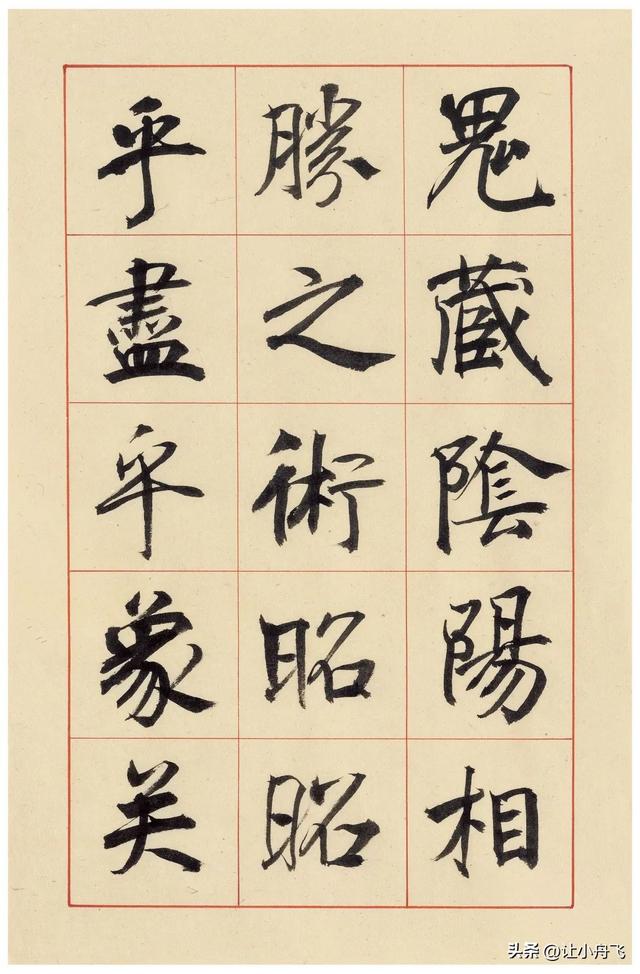 鬼藏陰陽相
勝之術昭昭
乎盡乎象矣
头条 @让小舟飞